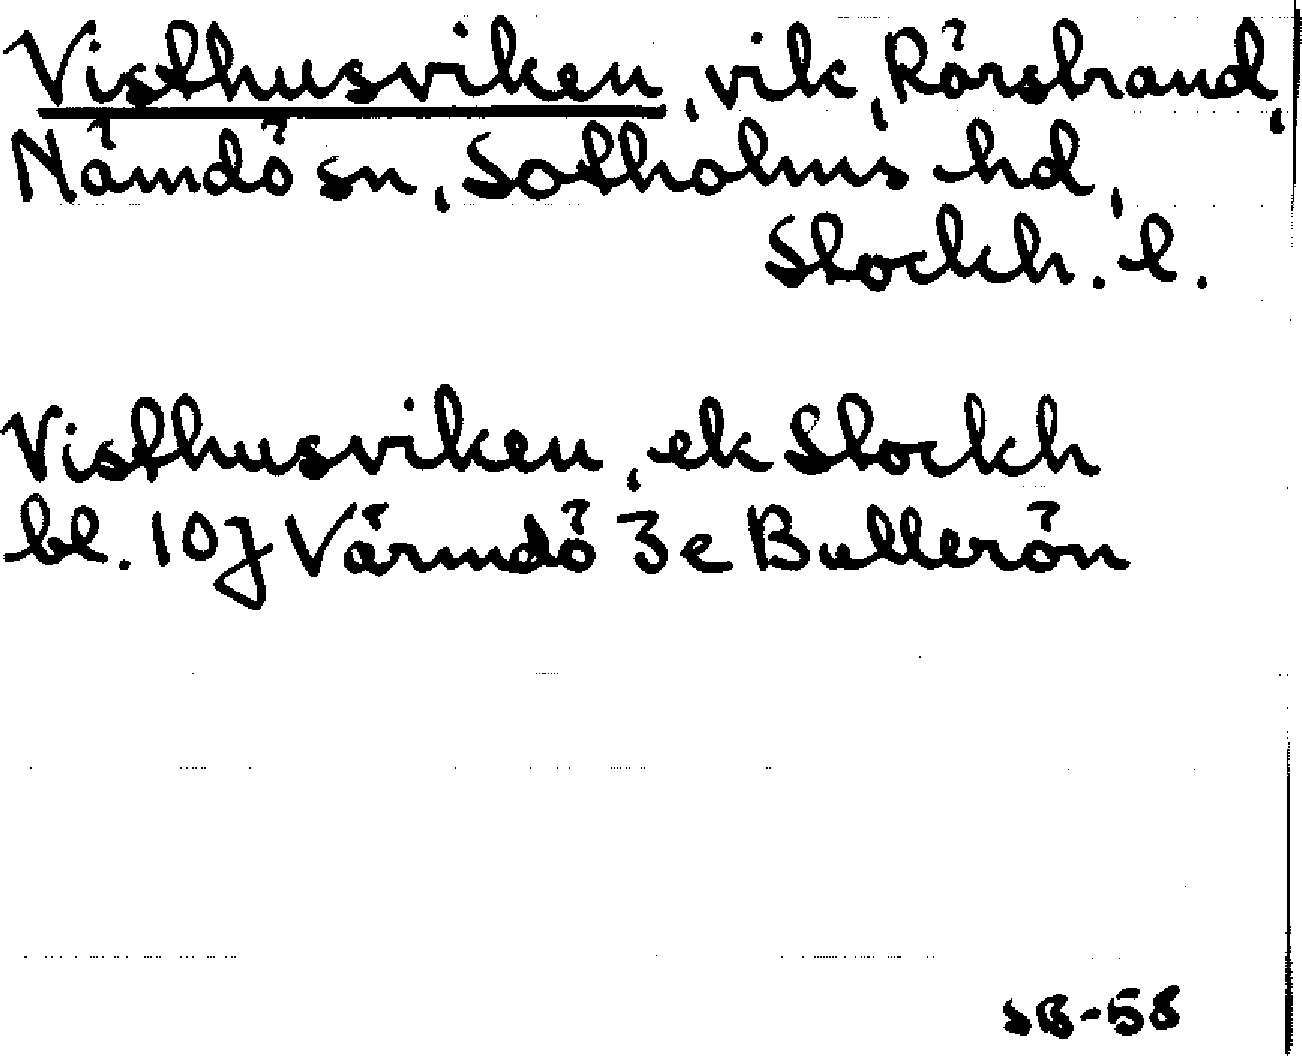 Visthusviken, vik, Rörstrand,
Nämdö sn, Sotholms hd,
Stockh. l.
Visthusviken, ek Stockh
bl. 10J Värmdö 3e Bullerön
SB-58